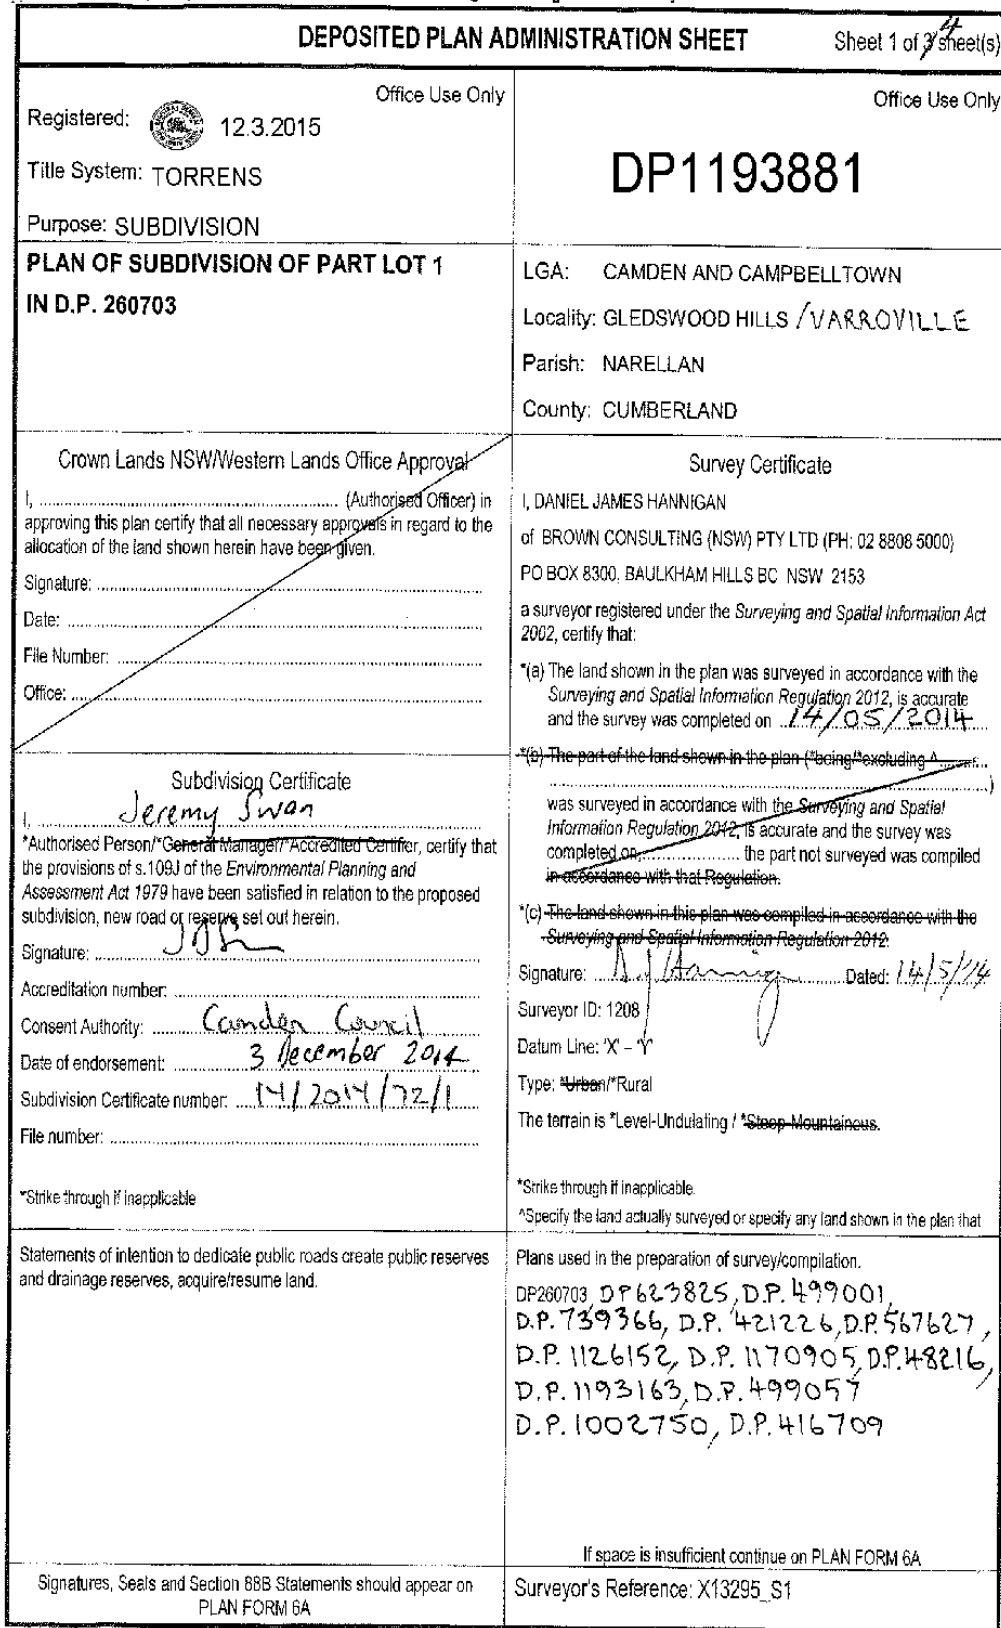 DEPOSITED PLAN ADMINISTRATION SHEET
Sheet 1 of 3 4 sheet(s)
Office Use Only
Registered: 12.3.2015
Title System: TORRENS
Purpose: SUBDIVISION
Office Use Only
DP1193881
PLAN OF SUBDIVISION OF PART LOT 1
IN D.P. 260703
LGA: CAMDEN AND CAMPBELLTOWN
Locality: GLEDSWOOD HILLS /VARROVILLE
Parish: NARELLAN
County: CUMBERLAND
Crown Lands NSW/Western Lands Office Approval
I, ........................................ (Authorised Officer) in
approving this plan certify that all necessary approvals in regard to the
allocation of the land shown herein have been given.
Signature: ........................................
Date: ........................................
File Number: ........................................
Office: ........................................
Subdivision Certificate
I, Jeremy Swan
*Authorised Person/*General Manager/*Accredited Certifier, certify that
the provisions of s.109J of the Environmental Planning and
Assessment Act 1979 have been satisfied in relation to the proposed
subdivision, new road or reserve set out herein.
Signature: ........................................
Accreditation number: ........................................
Consent Authority: Camden Council
Date of endorsement: 3 December 2014
Subdivision Certificate number: 14/2014/72/1
File number: ........................................
*Strike through if inapplicable
Survey Certificate
I, DANIEL JAMES HANNIGAN
of BROWN CONSULTING (NSW) PTY LTD (PH: 02 8808 5000)
PO BOX 8300, BAULKHAM HILLS BC NSW 2153
a surveyor registered under the Surveying and Spatial Information Act
2002, certify that:
*(a) The land shown in the plan was surveyed in accordance with the
Surveying and Spatial Information Regulation 2012, is accurate
and the survey was completed on 14/05/2014
*(b) The part of the land shown in the plan (*being/*excluding ^..........
........................................)
was surveyed in accordance with the Surveying and Spatial
Information Regulation 2012, is accurate and the survey was
completed on,.................... the part not surveyed was compiled
in accordance with that Regulation.
*(c) The land shown in this plan was compiled in accordance with the
Surveying and Spatial Information Regulation 2012.
Signature: DJ Hannig Dated: 14/5/14
Surveyor ID: 1208
Datum Line: 'X' – 'Y'
Type: *Urban/*Rural
The terrain is *Level-Undulating / *Steep-Mountainous.
*Strike through if inapplicable.
^Specify the land actually surveyed or specify any land shown in the plan that
Statements of intention to dedicate public roads create public reserves
and drainage reserves, acquire/resume land.
Plans used in the preparation of survey/compilation.
DP260703, DP623825, D.P. 499001,
D.P. 739366, D.P. 421226, D.P. 567627,
D.P. 1126152, D.P. 1170905, D.P. 48216,
D.P. 1193163, D.P. 499057
D.P. 1002750, D.P. 416709
If space is insufficient continue on PLAN FORM 6A
Signatures, Seals and Section 88B Statements should appear on
PLAN FORM 6A
Surveyor's Reference: X13295_S1